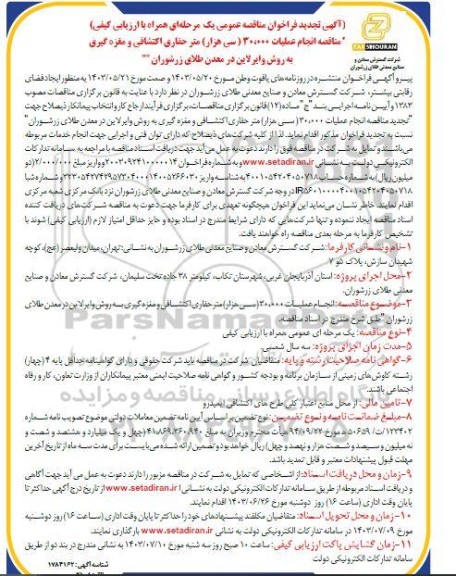 (آگهی تجدید فراخوان مناقصه عمومی یک مرحله‌ای همراه با ارزیابی کیفی)
"مناقصه انجام عملیات ۳۰,۰۰۰ ( سی هزار) متر حفاری اکتشافی و مغزه گیری
به روش وایرلاین در معدن طلای زرشوران "
ZARSHOURAN
شرکت گسترش معادن و
صنایع معدنی طلای زرشوران
پیرو آگهی فراخوان منتشره در روزنامه‌های یاقوت وطن مورخ ۱۴۰۳/۰۵/۲۰ و صمت مورخ ۱۴۰۳/۰۵/۲۱ به منظور ایجاد فضای
رقابتی بیشتر، شرکت گسترش معادن و صنایع معدنی طلای زرشوران در نظر دارد با عنایت به قانون برگزاری مناقصات مصوب
۱۳۸۳ و آیین نامه اجرایی بند "ج" ماده (۱۲) قانون برگزاری مناقصات، برگزاری فرآیند ارجاع کار و انتخاب پیمانکار ذیصلاح جهت
"تجدید مناقصه انجام عملیات ۳۰,۰۰۰ ( سی هزار) متر حفاری اکتشافی و مغزه گیری به روش وایرلاین در معدن طلای زرشوران"
نسبت به تجدید فراخوان مذکور اقدام نماید. لذا از کلیه شرکت‌های ذیصلاح که دارای توان فنی و اجرایی جهت انجام خدمات مربوطه
می‌باشند و تمایل به شرکت در مناقصه فوق را دارند دعوت به عمل می‌آید جهت دریافت اسناد مناقصه با مراجعه به سامانه تدارکات
الکترونیکی دولت به نشانی www.setadiran.ir و به شماره فراخوان ۲۰۰۳۰۹۲۴۱۰۰۰۰۰۱۴ و واریز مبلغ ۲/۰۰۰/۰۰۰ (دو
میلیون ریال) به شماره حساب
اقدام نمایند. خاطر نشان می‌نماید این فراخوان هیچگونه تعهدی برای کارفرما جهت دعوت به مناقصه شرکت‌های دریافت کننده
اسناد مناقصه ایجاد ننموده و تنها شرکت‌هایی که دارای شرایط مندرج در اسناد بوده و حایز حداقل امتیاز لازم (ارزیابی کیفی) شوند با
تشخیص کارفرما به مرحله بعدی مناقصه راه خواهند یافت.
۱-نام و نشانی کارفرما: شرکت گسترش معادن و صنایع معدنی طلای زرشوران به نشانی: تهران، میدان ولیعصر (عج)، کوچه
شهیدان سازش، پلاک دو ۲
۲-محل اجرای پروژه: استان آذربایجان غربی، شهرستان تکاب، کیلومتر ۳۸ جاده تخت سلیمان، شرکت گسترش معادن و صنایع
معدنی طلای زرشوران.
۳-موضوع مناقصه: انجام عملیات ۳۰,۰۰۰ ( سی هزار) متر حفاری اکتشافی و مغزه گیری به روش وایرلاین در معدن طلای
زرشوران "طبق شرح مندرج در اسناد مناقصه.
۴-نوع مناقصه: یک مرحله ای عمومی همراه با ارزیابی کیفی
۵-مدت زمان اجرای پروژه: سه سال شمسی.
۶-گواهی نامه صلاحیت/رشته و پایه: متقاضیان شرکت در مناقصه باید شرکت حقوقی و دارای گواهینامه حداقل پایه ۴ (چهار)
رشته کاوش‌های زمینی از سازمان برنامه و بودجه کشور و گواهی نامه صلاحیت ایمنی معتبر پیمانکاران از وزارت تعاون، کار و رفاه
اجتماعی باشند.
۷-تامین مالی: از محل منابع اعتبار کلی طرح های اکتشافی ایمیدرو
۸-مبلغ ضمانت نامه و نوع تضمین: نوع تضمین بر اساس آیین نامه تضمین معاملات دولتی موضوع تصویب نامه شماره
۱۲۳۴۰۲/ت ۵۰۶۵۹ه مورخ ۹۴/۰۹/۲۲ هیأت محترم وزیران به مبلغ
مهلت قبول پیشنهادات معتبر و قابل تمدید باشد.
۹-زمان و محل دریافت اسناد: از اشخاصی که تمایل به شرکت در مناقصه مزبور را دارند دعوت به عمل می آید جهت آگاهی
و دریافت اسناد مربوطه از طریق سامانه تدارکات الکترونیکی دولت به نشانی www.setadiran.ir از تاریخ درج آگهی حداکثر تا
پایان وقت اداری (ساعت ۱۶) روز دوشنبه مورخ ۱۴۰۳/۰۶/۲۶ اقدام نمایند.
۱۰-زمان و محل تحویل اسناد: متقاضیان مکلفند پیشنهادهای خود را حداکثر تا پایان وقت اداری (ساعت ۱۶) روز دوشنبه
مورخ ۱۴۰۳/۰۷/۰۹ در سامانه تدارکات الکترونیکی دولت به نشانی www.setadiran.ir بارگذاری نمایند.
۱۱-زمان گشایش پاکت ارزیابی کیفی: ساعت ۱۰ صبح روز سه شنبه مورخ ۱۴۰۳/۰۷/۱۰ به نشانی مندرج در بند دو از طریق
سامانه تدارکات الکترونیکی دولت
شناسه آگهی: ۱۷۸۴۱۶۲